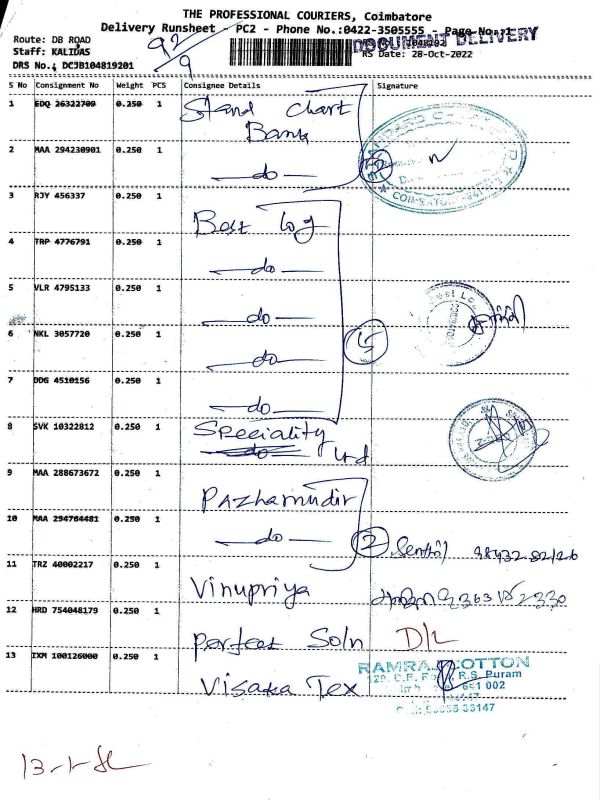 THE PROFESSIONAL COURIERS, Coimbatore
Delivery Runsheet - PC2 - Phone No.:0422-3505555 - Page No.:1
DOCUMENT DELIVERY
Route: DB ROAD
Staff: KALIDAS
DRS No.: DCJB104819201
92/9
RS Date: 28-Oct-2022
S No Consignment No Weight PCS Consignee Details Signature
1 EDQ 26322709 0.250 1 Stand Chart Bank
2 MAA 294230901 0.250 1 do
3 RJY 456337 0.250 1 Best log
4 TRP 4776791 0.250 1 do
5 VLR 4795133 0.250 1 do
6 NKL 3057720 0.250 1 do
7 DDG 4510156 0.250 1 do
5
8 SVK 10322812 0.250 1 Speciality Ltd
9 MAA 288673672 0.250 1 Pazhamudir
10 MAA 294764481 0.250 1 do
2
11 TRZ 40002217 0.250 1 Vinupriya
12 HRD 754048179 0.250 1 Perfect Soln D/L
13 TXM 100126000 0.250 1 Visaka Tex
RAMRAJ COTTON
R.S. Puram
641 002
13-1-SL